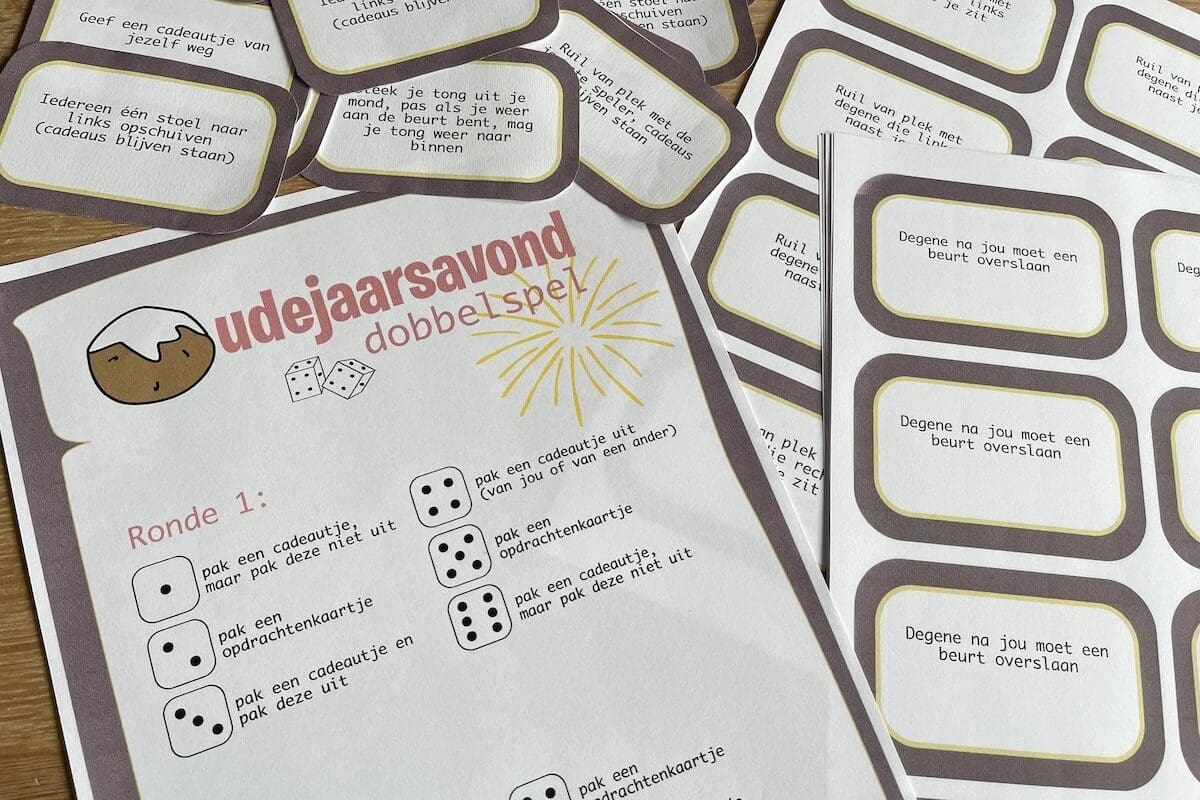 Geef een cadeautje van
jezelf weg
links opschuiven
(cadeaus blijven staan)
één stoel naar
schuiven
blijven staan)
Iedereen één stoel naar
links opschuiven
(cadeaus blijven staan)
Steek je tong uit je
mond, pas als je weer
aan de beurt bent, mag
je tong weer naar
binnen
Ruil van plek met de
speler, cadeaus
blijven staan
met
links
je zit
Ruil van
degene
naast
Ruil van plek met
degene die links
naast je
Ruil
degene
naast
van plek
die
zit
udejaarsavond
dobbelspel
Ronde 1:
pak een cadeautje,
maar pak deze niet uit
pak een
opdrachtenkaartje
pak een cadeautje en
pak deze uit
pak een cadeautje uit
(van jou of van een ander)
pak een
opdrachtenkaartje
pak een cadeautje,
maar pak deze niet uit
pak een
opdrachtenkaartje
Degene na jou moet een
beurt overslaan
Degene na jou moet een
beurt overslaan
Degene na jou moet een
beurt overslaan